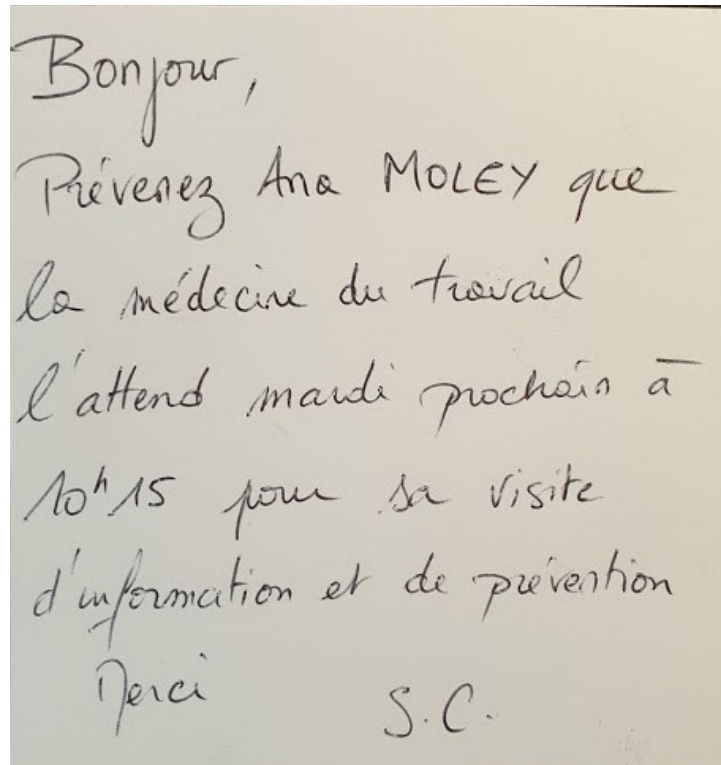 Bonjour,
Prévenez Ana MOLEY que
la médecine du travail
l'attend mardi prochain à
10h15 pour sa visite
d'information et de prévention
Merci S.C.